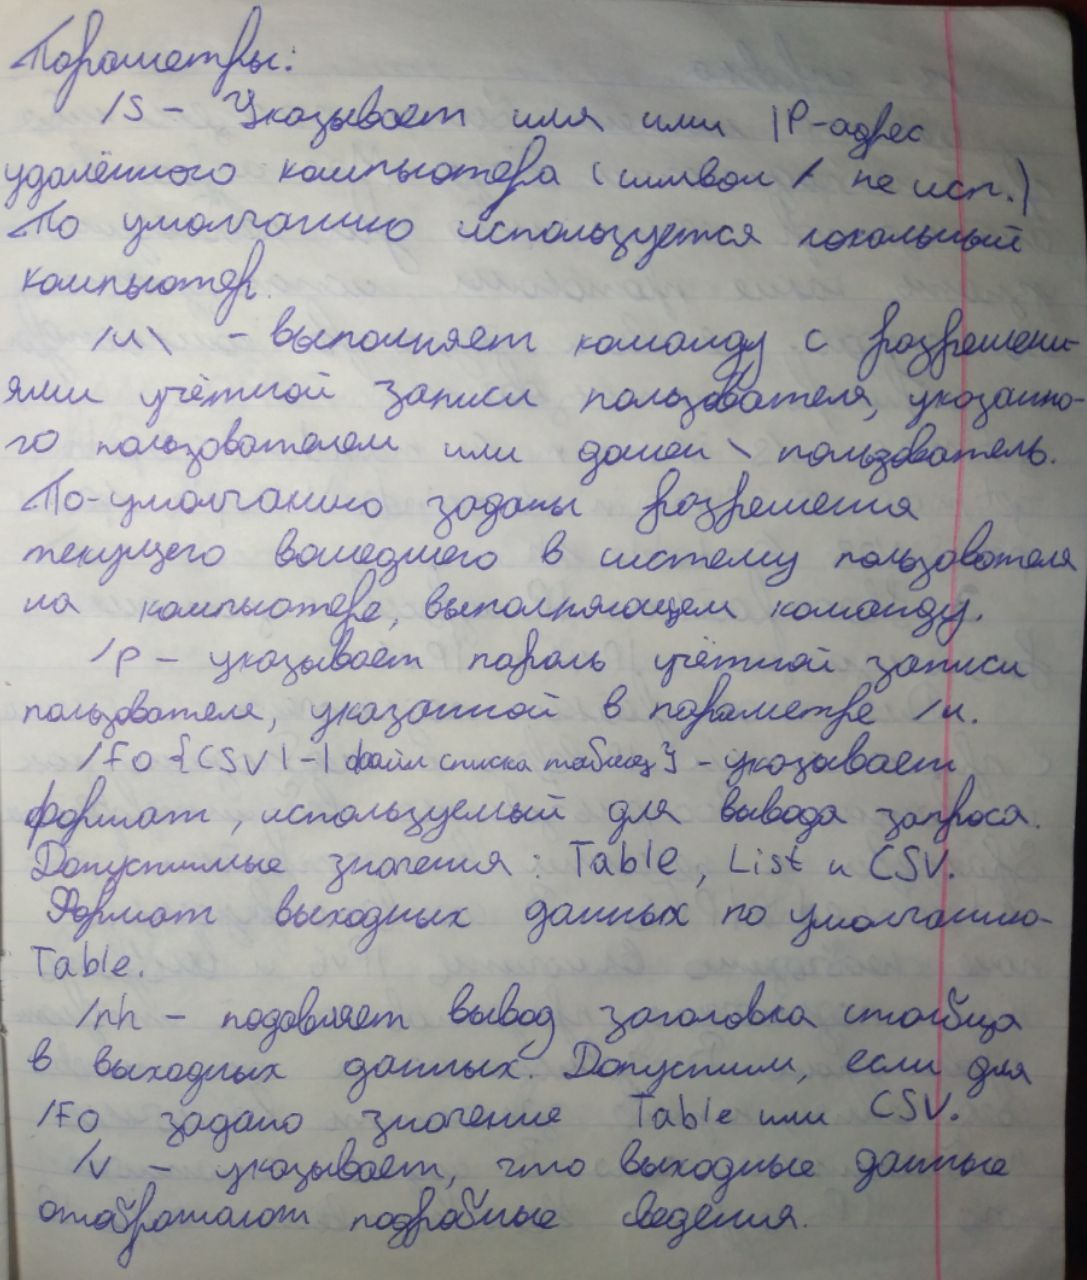 Параметры:
/S – Указывает имя или IP-адрес
удалённого компьютера (символ / не исп.)
По умолчанию используется локальный
компьютер.
/u\ – выполняет команду с разрешени-
ями учётной записи пользователя, указанно-
го пользователем или домен \ пользователь.
По-умолчанию заданы разрешения
текущего вошедшего в систему пользователя
на компьютере, выполняющем команду.
/p – указывает пароль учётной записи
пользователя, указанной в параметре /u.
/Fo {CSV | - | файл списка таблиц} – указывает
формат, используемый для вывода запроса.
Допустимые значения: Table, List и CSV.
Формат выходных данных по умолчанию-
Table.
/nh – подавляет вывод заголовка столбца
в выходных данных. Допустим, если для
/Fo задано значение Table или CSV.
/v – указывает, что выходные данные
отображают подробные сведения.